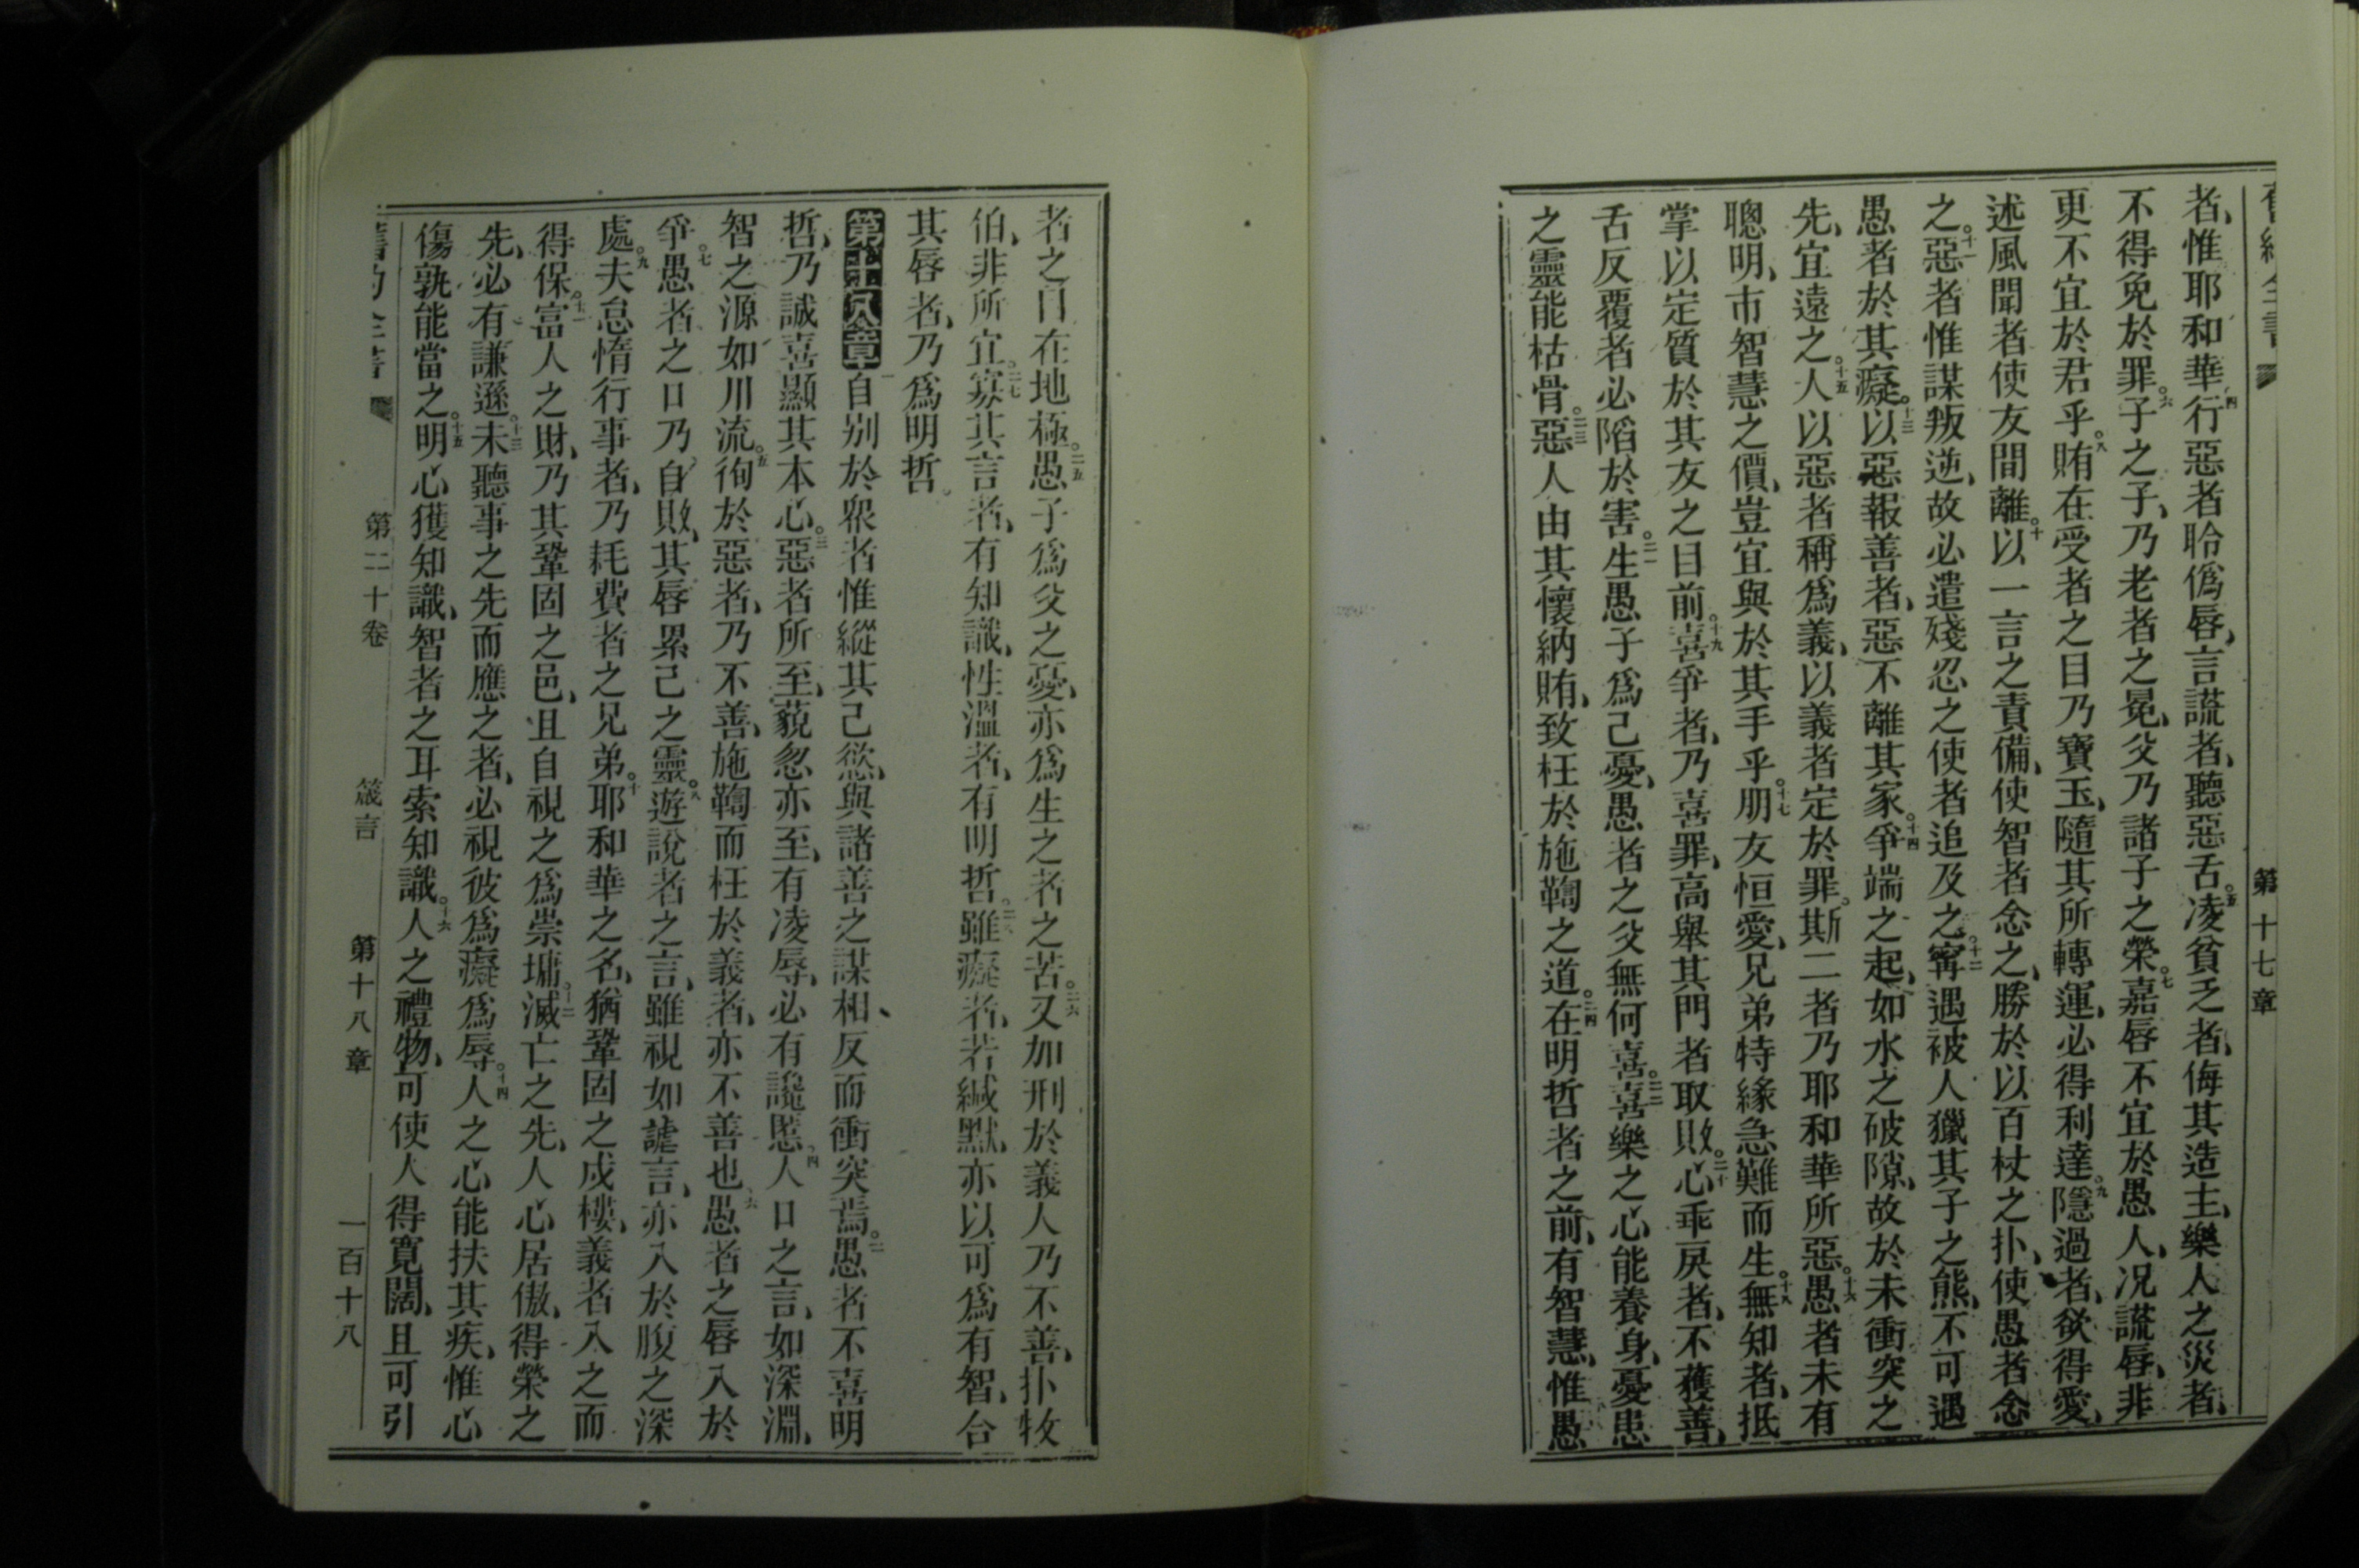 第十七章
者、惟耶和華。四行惡者聆僞唇、言謊者、聽惡舌。五凌貧乏者、侮其造主、樂人之災者、
不得免於罪。六子之子、乃老者之冕、父乃諸子之榮。七嘉唇不宜於愚人、况謊唇、非
更不宜於君乎。八賄在受者之目乃寶玉、隨其所轉運、必得利達。九隱過者、欲得愛、
述風聞者使友間離。十以一言之責備、使智者念之、勝於以百杖之扑、使愚者念
之。十一惡者惟謀叛逆、故必遣殘忍之使者追及之。十二寗遇被人獵其子之熊、不可遇
愚者於其癡。十三以惡報善者、惡不離其家。十四爭端之起、如水之破隙、故於未衝突之
先、宜遠之。十五人以惡者稱爲義、以義者定於罪。斯二者乃耶和華所惡。十六愚者未有
聰明、市智慧之價、豈宜與於其手乎。十七朋友恒愛、兄弟特緣急難而生。十八無知者、抵
掌以定質於其友之目前。十九喜爭者、乃喜罪、高舉其門者取敗。二十心乖戾者、不獲善、
舌反覆者必陷於害。二一生愚子爲己憂、愚者之父無何喜。二二喜樂之心能養身、憂患
之靈能枯骨。二三惡人由其懷納賄、致枉於施鞫之道。二四在明哲者之前、有智慧、惟愚
者之目在地極。二五愚子爲父之憂、亦爲生之者之苦。二六又加刑於義人乃不善、扑牧
伯、非所宜。二七寡其言者、有知識、性溫者、有明哲。二八雖癡者、若緘默、亦以可爲有智、台
其唇者、乃爲明哲。
第十八章自别於眾者惟縱其己慾、與諸善之謀、相反而衝突焉。二愚者不喜明
哲、乃誠喜顯其本心。三惡者所至、藐忽亦至、有凌辱、必有讒慝。四人口之言、如深淵、
智之源如川流。五徇於惡者、乃不善、施鞫而枉於義者、亦不善也。六愚者之唇入於
爭。七愚者之口乃自敗、其唇累己之靈。八遊說者之言、雖視如謔言、亦入於腹之深
處。九夫怠惰行事者、乃耗費者之兄弟。十耶和華之名、猶鞏固之戍樓、義者入之而
得保。十一富人之財、乃其鞏固之邑、且自視之爲崇墉。十二滅亡之先、人心居傲、得榮之
先、必有謙遜。十三未聽事之先而應之者、必視彼爲癡爲辱。十四人之心能扶其疾、惟心
傷孰能當之。十五明心獲知識、智者之耳索知識。十六人之禮物、可使人得寬闊、且可引
第二十卷 箴言 第十八章 一百十八